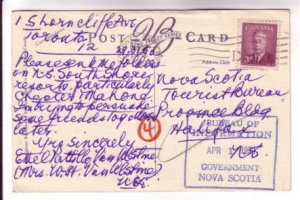 1 Shorncliffe Ave
Toronto
12
POST CARD
Address Only
CANADA
3
Please send me folders
on N.S. South Shore
resorts, particularly
Chester, Mahone.
Am trying to persuade
some friends to go down
later.
Yrs Sincerely
(Mrs. W.H.
Nova Scotia
Tourist Bureau
Province Bldg
Halifax
N.S.
4
BUREAU OF
INFORMATION
APR
GOVERNMENT
NOVA SCOTIA